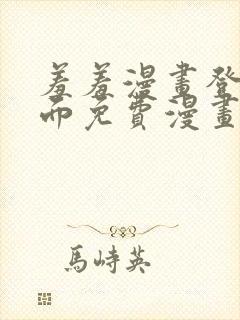 羞羞漫畫登
而免費漫畫
馬峙英